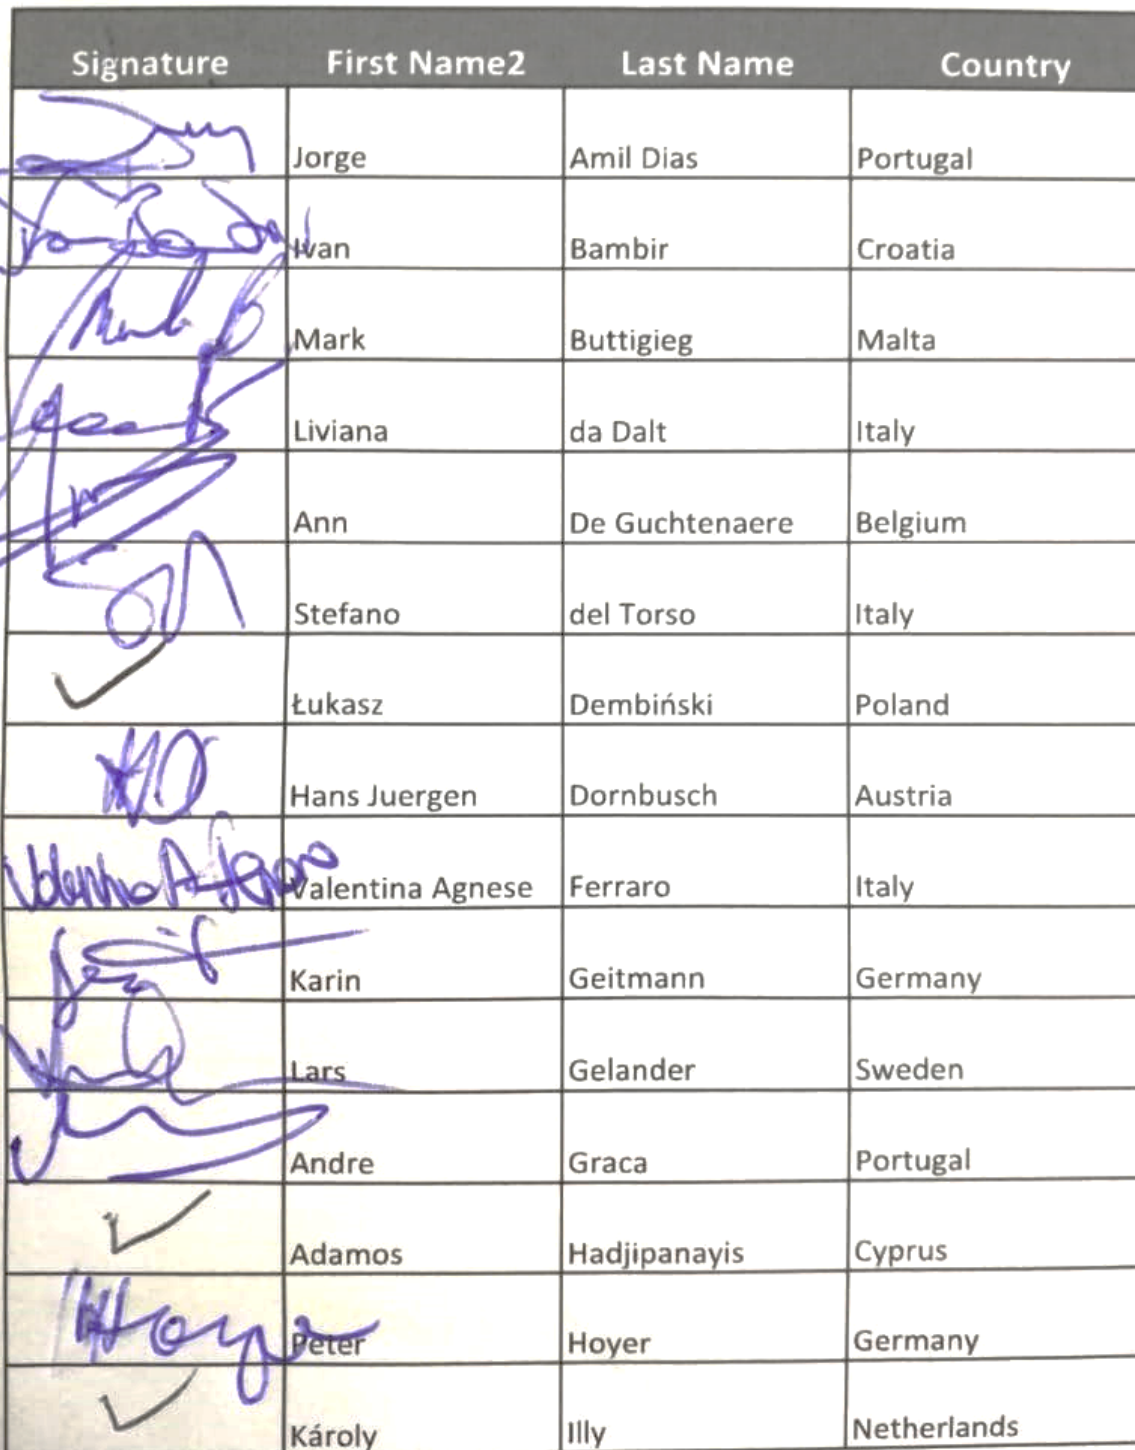 Signature First Name2 Last Name Country
Jorge Amil Dias Portugal
Ivan Bambir Croatia
Mark Buttigieg Malta
Liviana da Dalt Italy
Ann De Guchtenaere Belgium
Stefano del Torso Italy
Łukasz Dembiński Poland
Hans Juergen Dornbusch Austria
Valentina Agnese Ferraro Italy
Karin Geitmann Germany
Lars Gelander Sweden
Andre Graca Portugal
Adamos Hadjipanayis Cyprus
Hoyer Peter Hoyer Germany
Károly Illy Netherlands